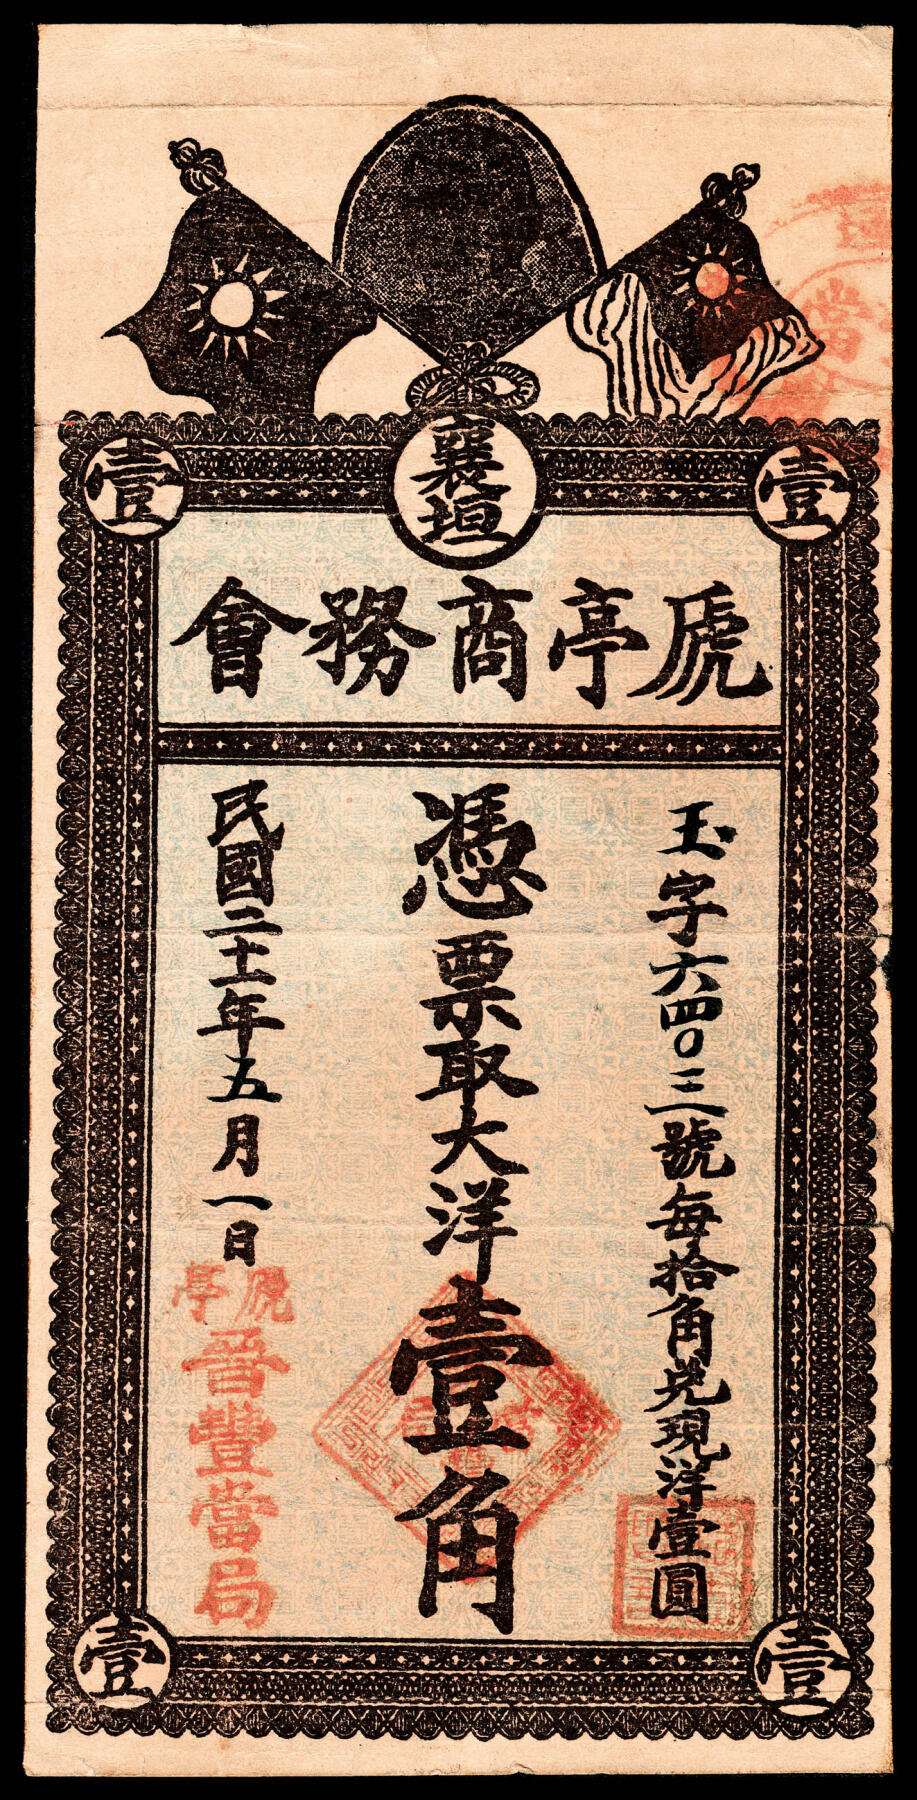 襄垣
壹
壹
虒亭商務會
玉字六四〇三號每拾角兌現洋壹圓
憑票取大洋壹角
民國二十一年五月一日
虒亭
晉豐當局
壹
壹